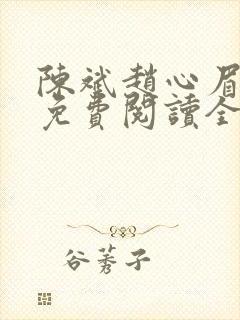 陳斌趙心眉
免費閱讀全
谷莠子